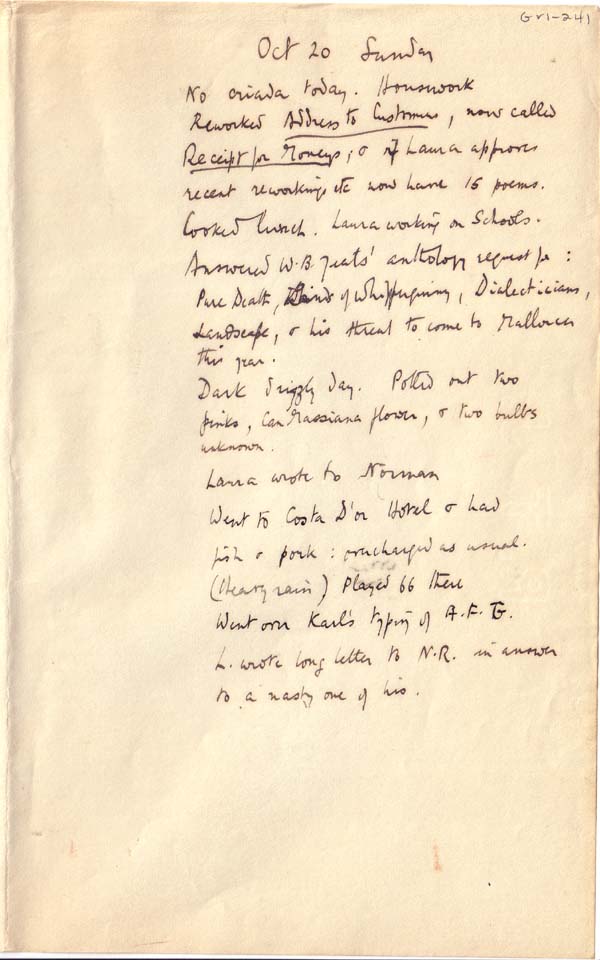 GVI-241
Oct 20 Sunday
No criada today. Housework
Reworked Address to Customers, now called
Receipt for Moneys; & if Laura approves
recent reworkings etc now have 15 poems.
Cooked lunch. Laura working on Schools.
Answered W.B. Yeats' anthology request for:
Pure Death, of Whippinginny, Dialecticians,
Landscape, & his threat to come to Mallorca
this year.
Dark drizzly day. Potted out two
pinks, Can Massiana flower, & two bulbs
unknown.
Laura wrote to Norman
Went to Costa D'or Hotel & had
fish & pork: overcharged as usual.
(Heavy rain) Played 66 there
Went over Karl's typing of A.F.G.
L. wrote long letter to N.R. in answer
to a nasty one of his.